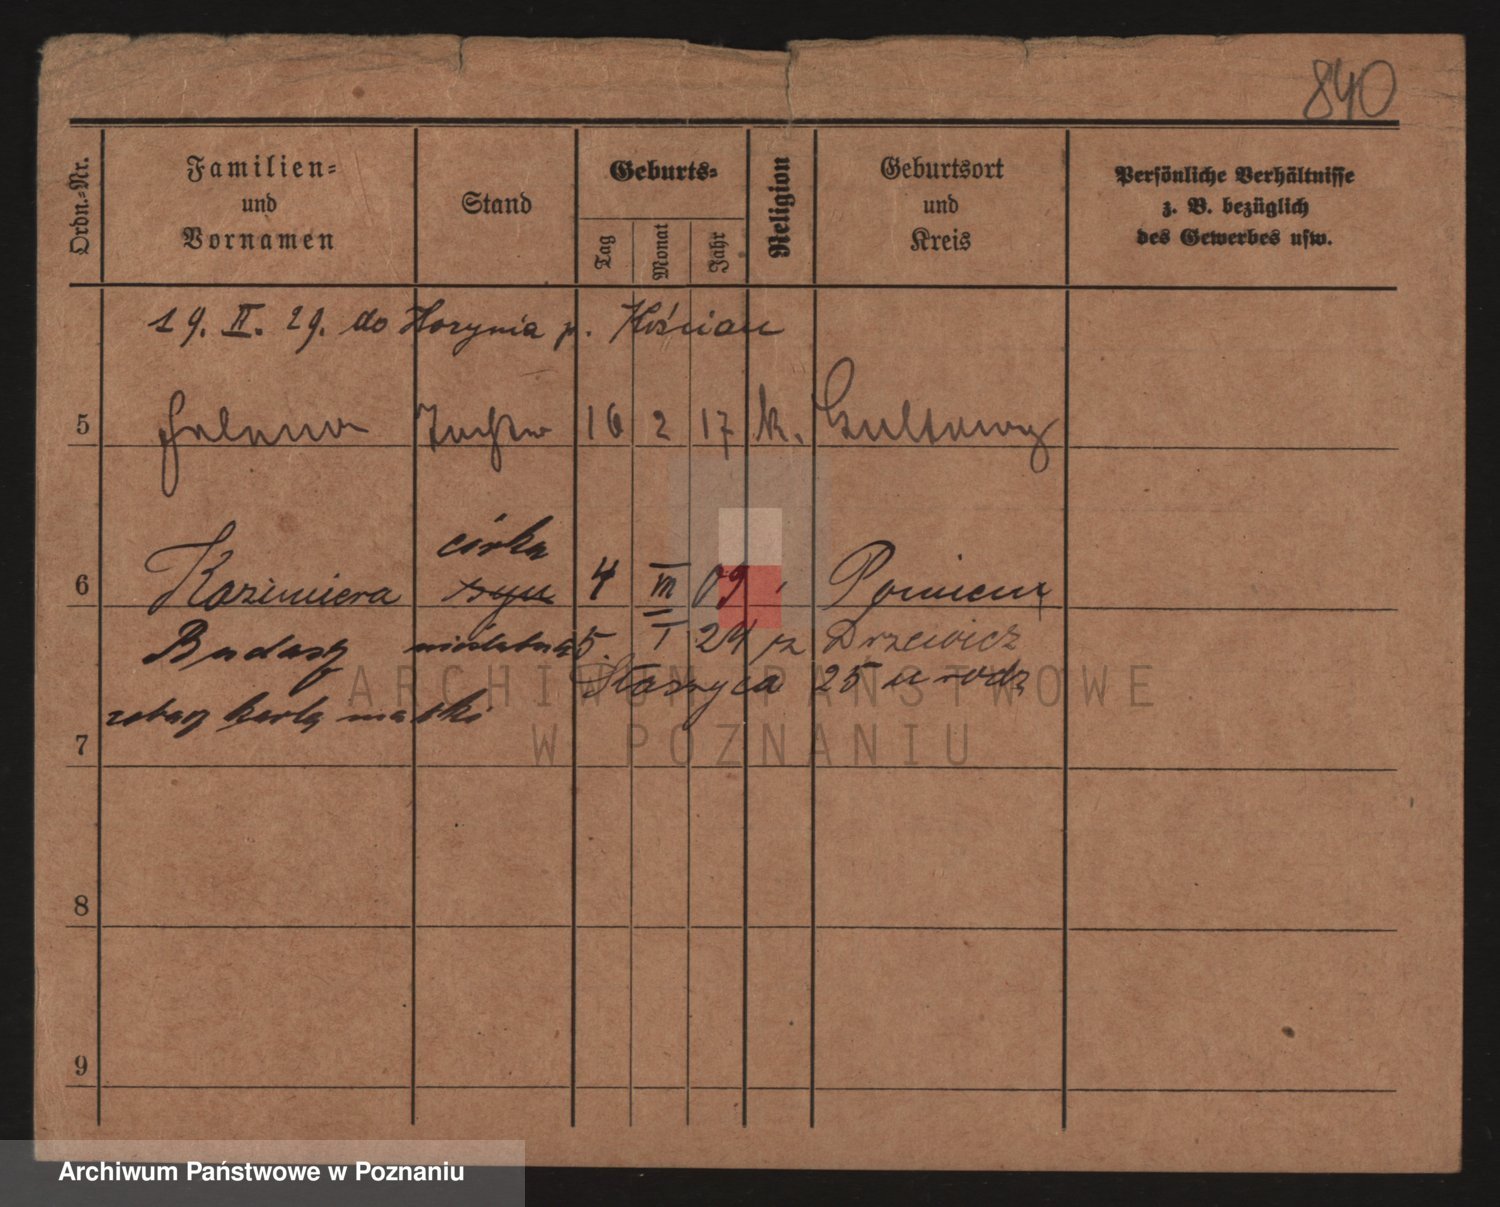 840
Ordn.-Nr.
Familien-
und
Vornamen
Stand
Geburts-
Tag
Monat
Jahr
Religion
Geburtsort
und
Kreis
Persönliche Verhältnisse
z. B. bezüglich
des Gewerbes usw.
19. II. 29. do Horynia p. Kościan
5 Helena Tochter 16 2 17 k. Gultowy
córka
6 Kazimiera syn 4 III 09 Pomieny
Budasz 5. I 24 rz Drzewicz
Staszyca 25 u rodz
zobacz kartę matki
7
8
9
ARCHIWUM PAŃSTWOWE
W POZNANIU
Archiwum Państwowe w Poznaniu